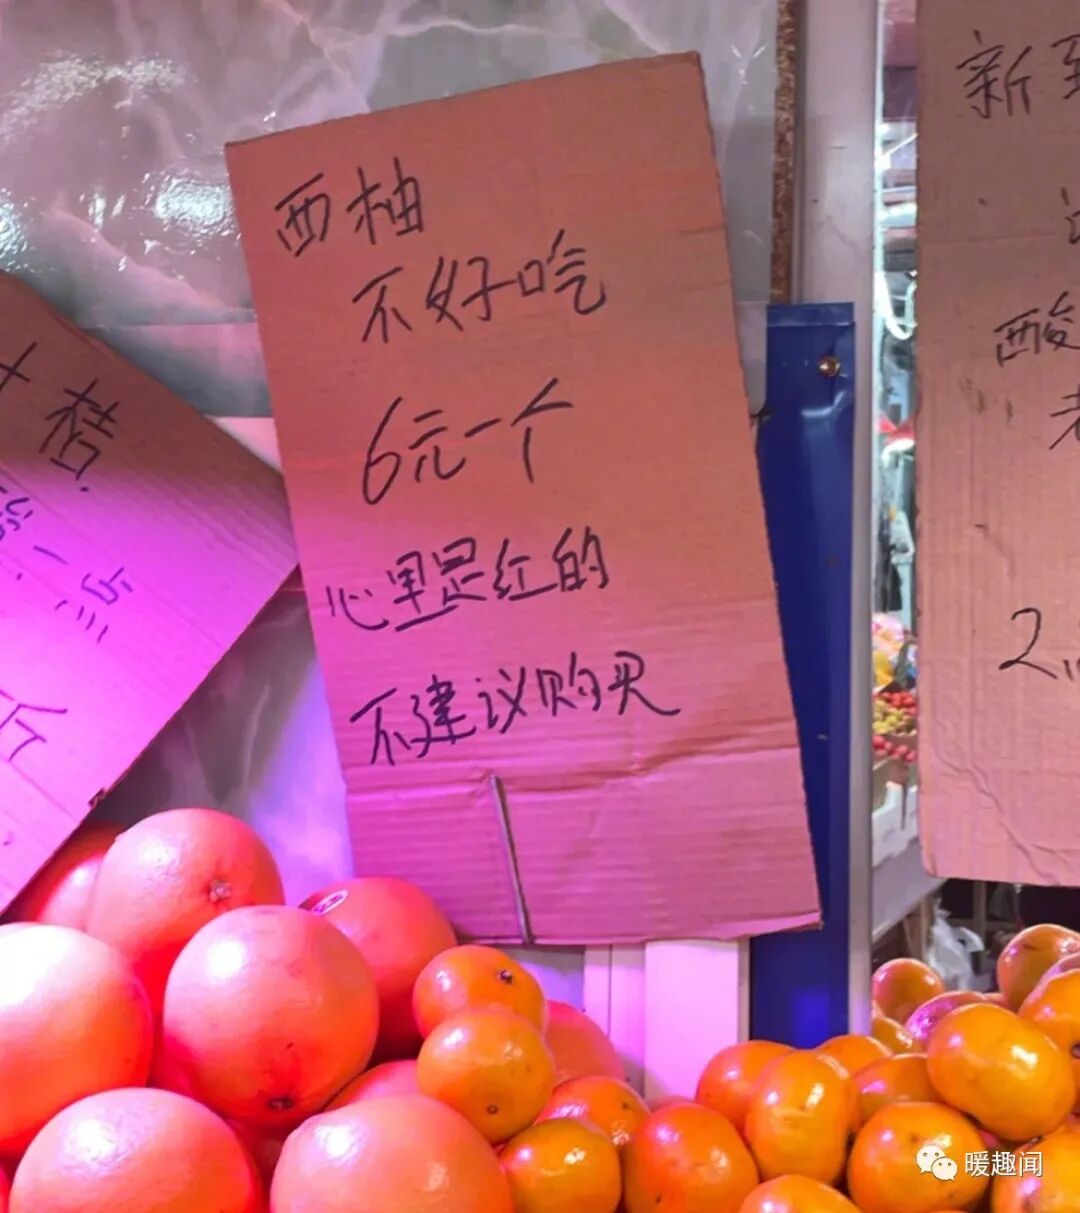 西柚
不好吃
6元一个
心里是红的
不建议购买
桔
一点
个
新到
酸
老
2
暖趣闻